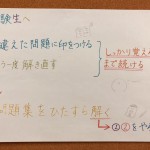 験生へ
違えた問題に印をつける
う一度 解き直す
しっかり覚え
まで続ける
題集をひたすら解く
→①②をや